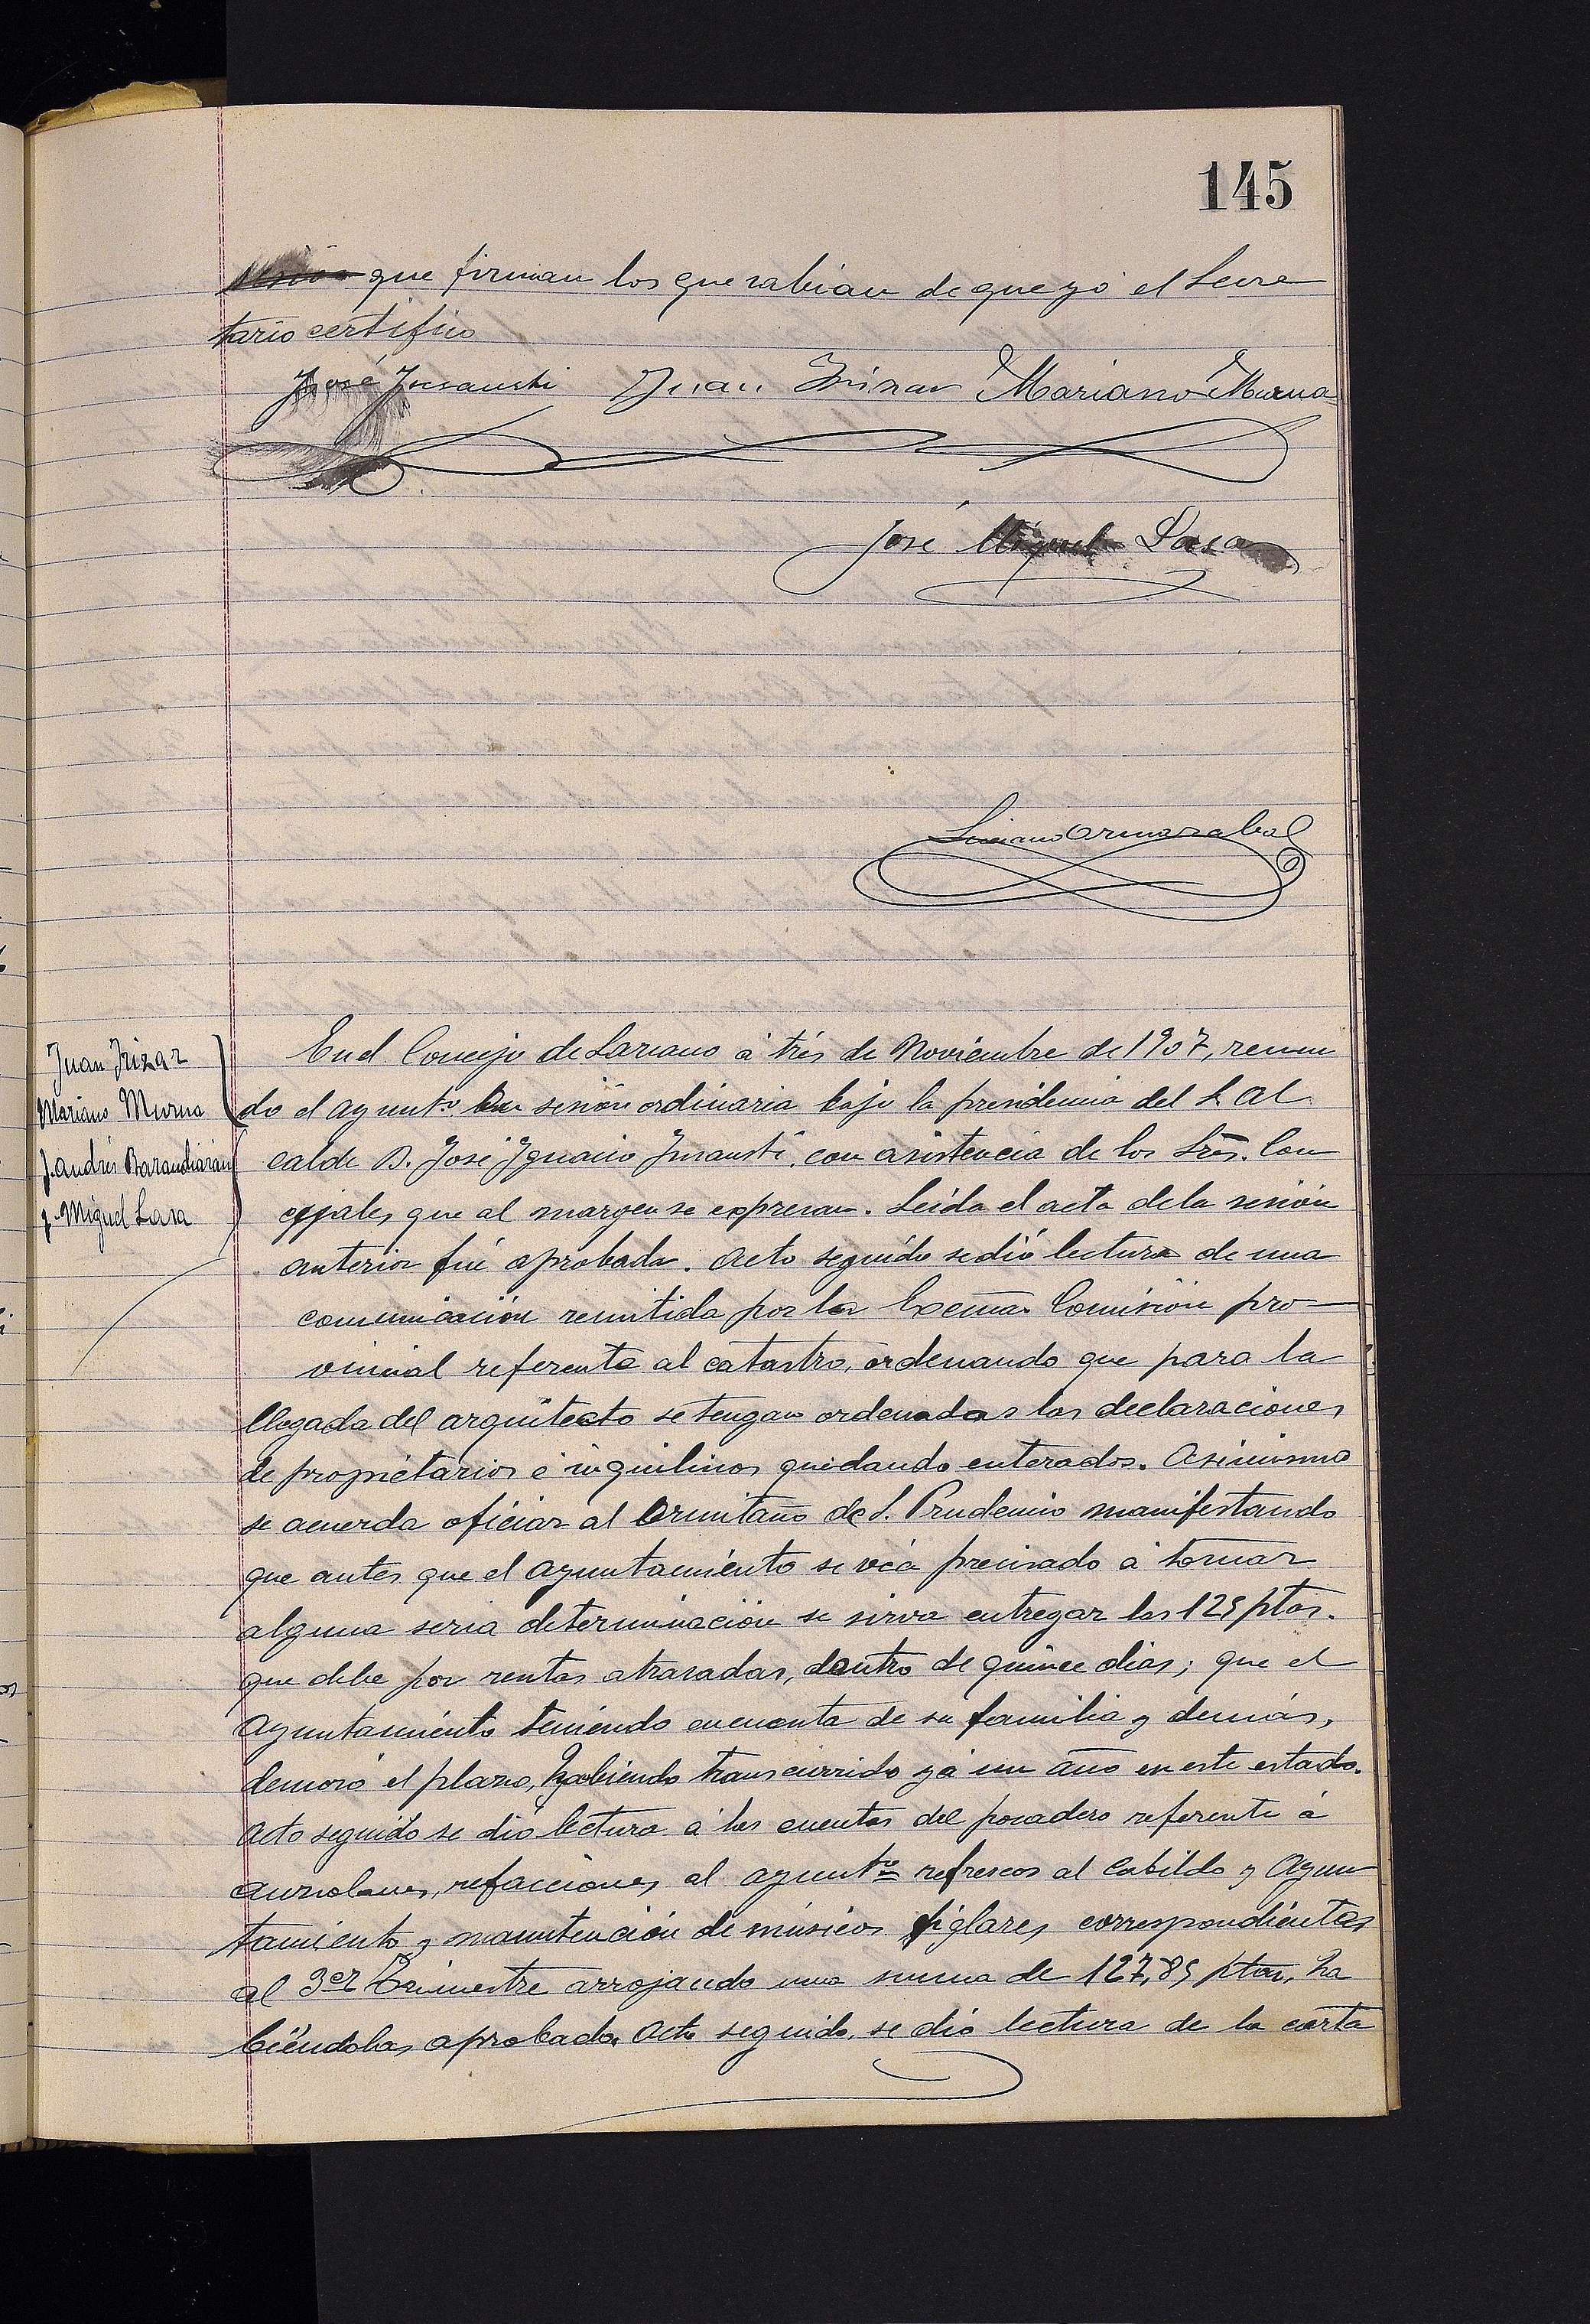 145
sesión que firman los que sabian de que yo el Secre
tario certifico
José Insausti Juan Irizar Mariano Murua
José Miguel Lasa
Luciano Ormazabal
Juan Irizar
Mariano Murua
J. Andrés Barandiarán
J. Miguel Lasa
En el Concejo de Lazcano á trés de Noviembre de 1907, reuni
do el ayunto. en sesión ordinaria bajo la presidencia del S. Al
calde D. José Ignacio Insausti, con asistencia de los Sres. Con
cejales que al margen se expresan. Leida el acta de la sesión
anterior fué aprobada. Acto seguido se dió lectura de una
comunicación remitida por la Excma. Comisión pro-
vincial referente al catastro, ordenando que para la
llegada del arquitecto se tengan ordenadas las declaraciones
de propietarios é inquilinos quedando enterados. Asimismo
se acuerda oficiar al Ermitaño de S. Prudencio manifestando
que antes que el Ayuntamiento se véa precisado á tomar
alguna seria determinación se sirva entregar las 125 ptas.
que debe por rentas atrasadas, dentro de quince dias; que el
Ayuntamiento teniendo en cuenta de su familia y demás,
demoró el plazo, habiendo transcurrido yá un año en este estado.
Acto seguido se dió lectura á las cuentas del posadero referente á
refacciones al ayunto. refrescos al Cabildo y Ayun
tamiento y manutención de músicos juglares correspondientes
al 3er Trimestre arrojando una suma de 127,85 ptas, ha
biéndolas aprobado. Acto seguido, se dió lectura de la carta